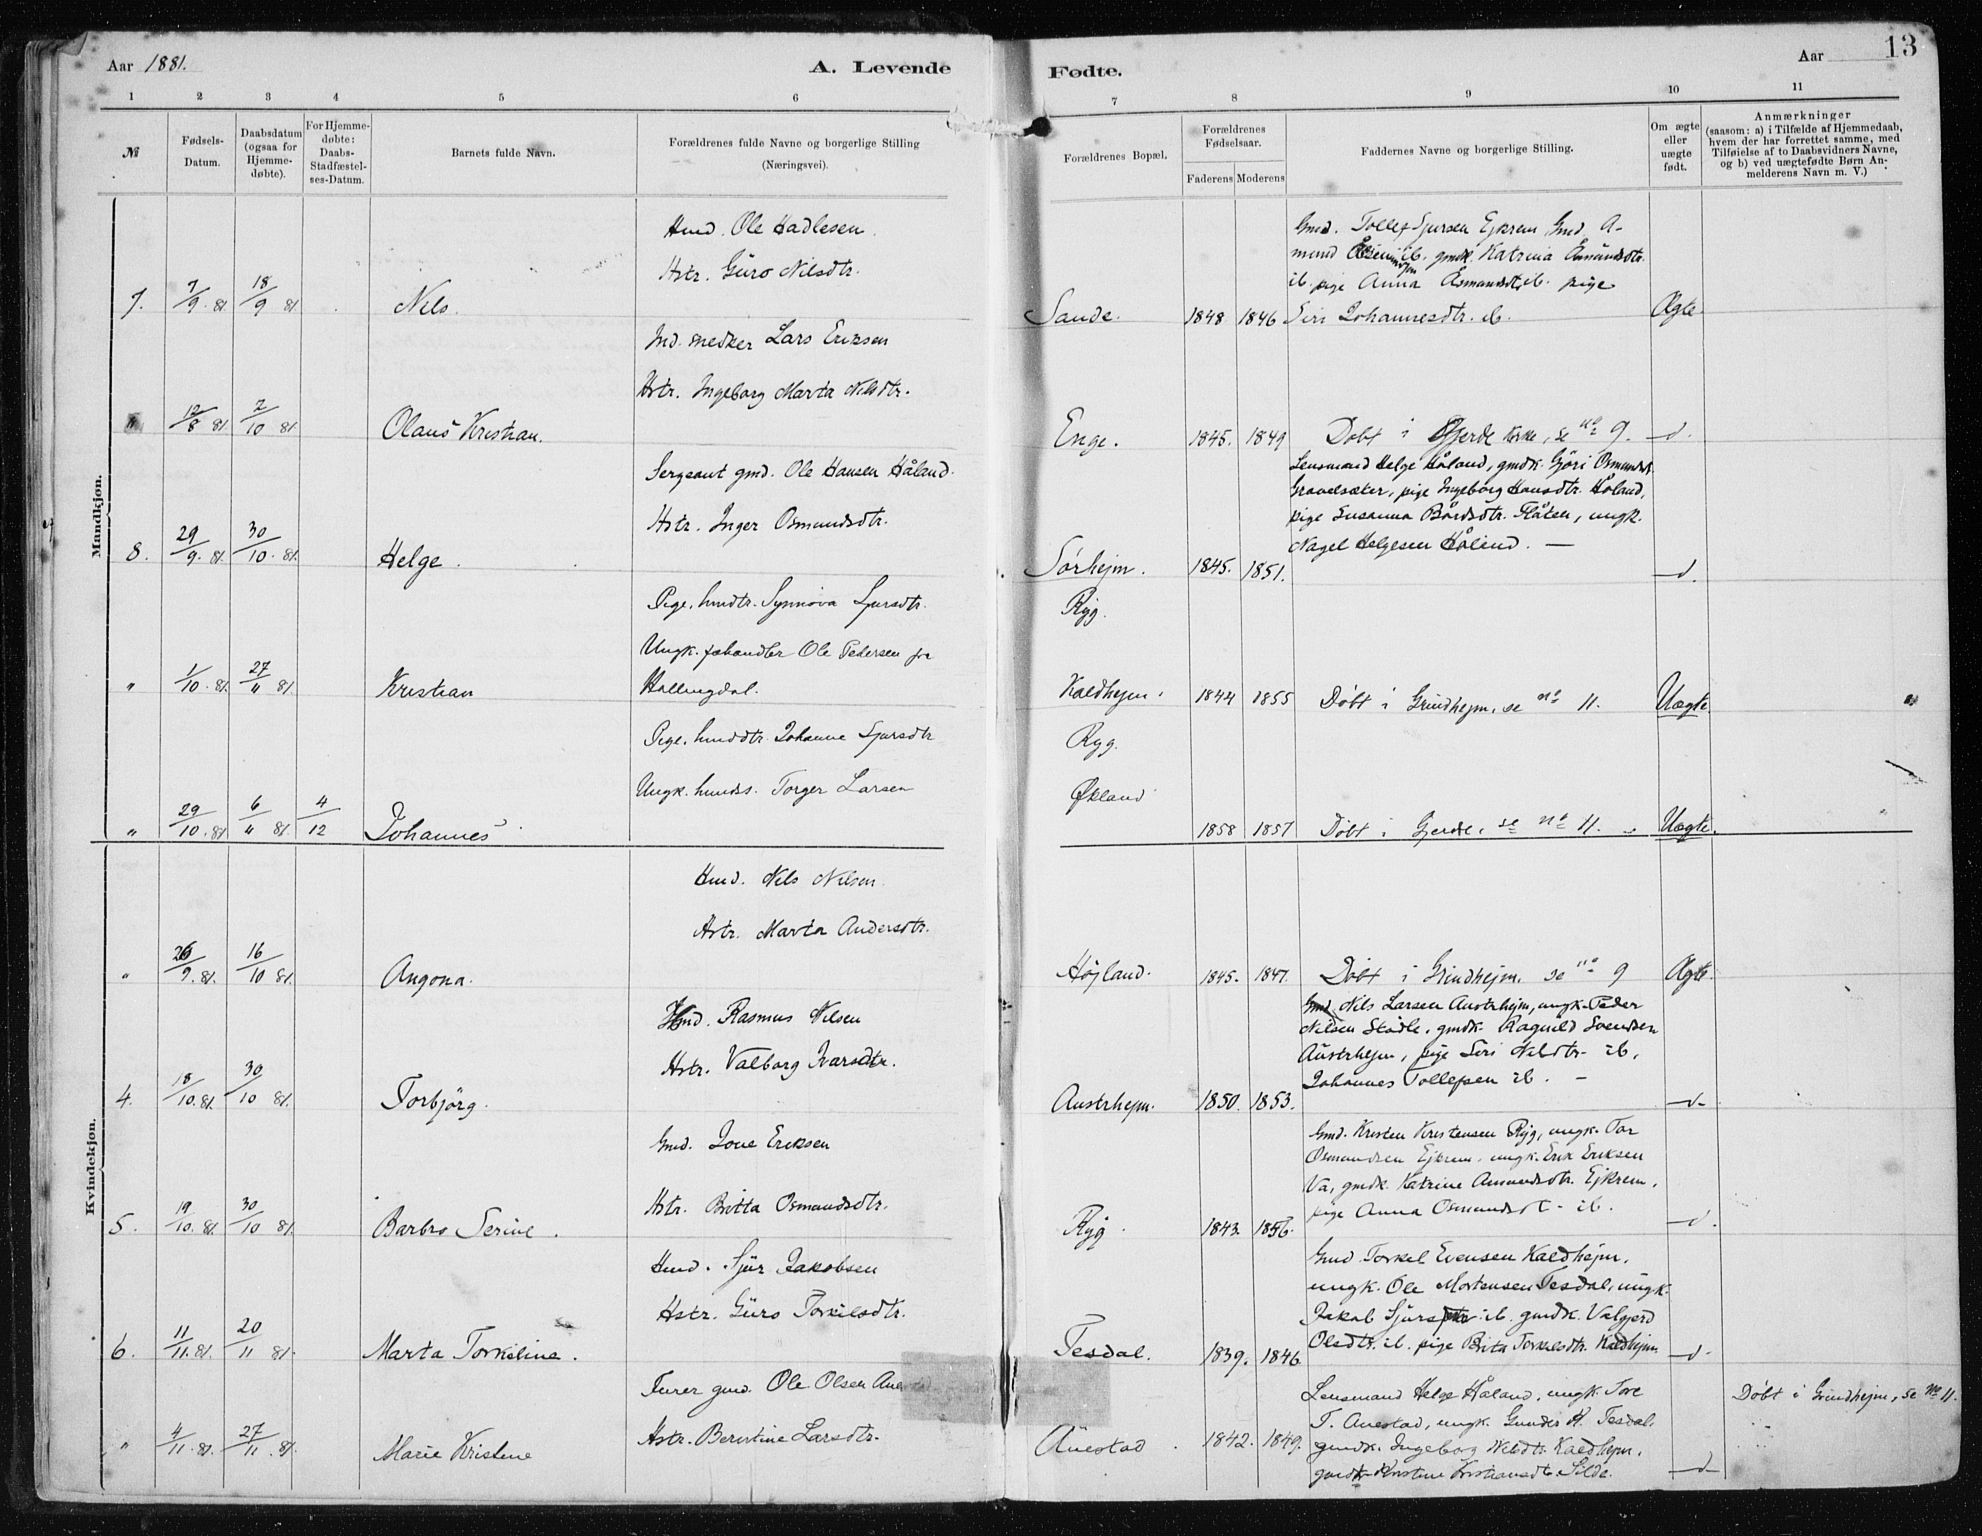 Aar 1881.
A. Levende
Fødte.
Aar
13
1 2 3 4 5 6 7 8 9 10 11
№
Fødsels-
Datum.
Daabsdatum
(ogsaa for
Hjemme-
døbte).
For Hjemme-
døbte:
Daabs-
Stadfæstel-
ses-Datum.
Barnets fulde Navn.
Forældrenes fulde Navne og borgerlige Stilling
(Næringsvei).
Forældrenes Bopæl.
Forældrenes
Fødselsaar.
Faderens Moderens
Faddernes Navne og borgerlige Stilling.
Om ægte
eller
uægte
født.
Anmærkninger
(saasom: a) i Tilfælde af Hjemmedaab,
hvem der har forrettet samme, med
Tilføielse af to Daabsvidners Navne,
og b) ved uægtefødte Børn An-
melderens Navn m. V.)
Mandkjøn.
Hmd. Ole Hadlesen
Hstr. Guro Nilsdtr.
7. 7/9. 81 18/9 81 Nils.
Sande. 1848 1846
Gmd. Tollef Sjursen Ejkrem, Gmd. A-
mund ib. gmdk. Katrina Åsmundsdtr.
ib. pige Anna Åsmundsdt. ib. pige
Siri Johannesdtr. ib.
Ægte
Ind. snedker Lars Eriksen
Hstr. Ingeborg Marta Nilsdtr.
" 12/8 81 2/10 81. Olaus Kristian.
Enge. 1845. 1849 Døbt i Gjerde kirke, se no 9. -d.
Sergeant gmd. Ole Hansen Håland.
Hstr. Inger Osmundsdtr.
8. 29/9. 81. 30/10. 81. Helge.
Sørhejm. 1845. 1851.
Lensmand Helge Håland, gmdk. Gjöri Osmundsdt.
Gravelsæter, pige Ingeborg Hansdtr. Håland,
pige Susanna Bårdsdtr. Flåten, ungk.
Nagel Helgesen Håland. —
-d.
Pige, hmdtr. Synnøva Sjursdtr.
Ungk. fæhandler Ole Pedersen fra
Hallingdal.
" 1/10. 81. 27/11 81. Kristian
Ryg.
Kaldhejm. 1844 1855 Døbt i Grindhejm, se no 11. Uægte.
Pige, hmddtr. Johanne Sjursdtr
Ungk. hmds. Torger Larsen
" 29/10. 81. 6/11 81. 4/12 Johannes
Ryg.
Økland
1858 1857 Døbt i Gjerde, se no 11. Uægte.
Kvindekjøn.
Hmd. Nils Nilsen
Hstr. Marta Andersdtr.
" 26/9. 81. 16/10 81. Angona.
Højland. 1845. 1847. Døbt i Grindhejm. se no 9 Ægte.
Hmd. Rasmus Nilsen
Hstr. Valborg Ivarsdtr.
4. 18/10. 81. 30/10 81. Torbjörg.
Austrhejm. 1850. 1853.
Gmd. Nils Larsen Austrhejm, ungk. Peder
Nilsen Stødle, gmdk. Ragnild Svendsen
Austrhejm, pige Siri Nilsdtr. ib,
Johannes Tollefsen ib. —
-d-
Gmd. Jone Eriksen
Hstr. Britta Osmundsdtr.
5. 19/10. 81. 30/10 81. Barbro Serine.
Ryg. 1843. 1856.
Gmd. Kristen Kristensen Ryg, ungk. Tor
Osmundsen Ejkrem, ungk. Erik Eriksen
Va, gmdk. Katrine Amundsdtr. Ejkrem,
pige Anna Osmundsdt. ib.
-d.
Hmd. Sjur Jakobsen
Hstr. Guro Torkilsdtr.
6. 11/11. 81. 20/11 81. Marta Torkeline.
Tesdal. 1839. 1846.
Gmd Torkel Evensen Kaldhejm,
ungk. Ole Mortensen Tesdal, ungk.
Jakob Sjurs ib. gmdk. Valgjerd
Olsdtr. ib. pige Brita Torkilsdtr. Kaldhejm
-d-
Furer gmd. Ole Olsen
Hstr. Berntine Larsdtr.
" 4/11. 81. 27/11. 81. Marie Kristine
Auestad. 1842. 1849.
Lensmand Helge Håland, ungk. Tore
T. Auestad, ungk. Gunder H. Tesdal,
gmdk. Ingeborg Nilsdtr. Kaldhejm,
gmdk. Kristine Kristiansdt. Silde.
-d-
Døbt i Grindhejm, se no 11.